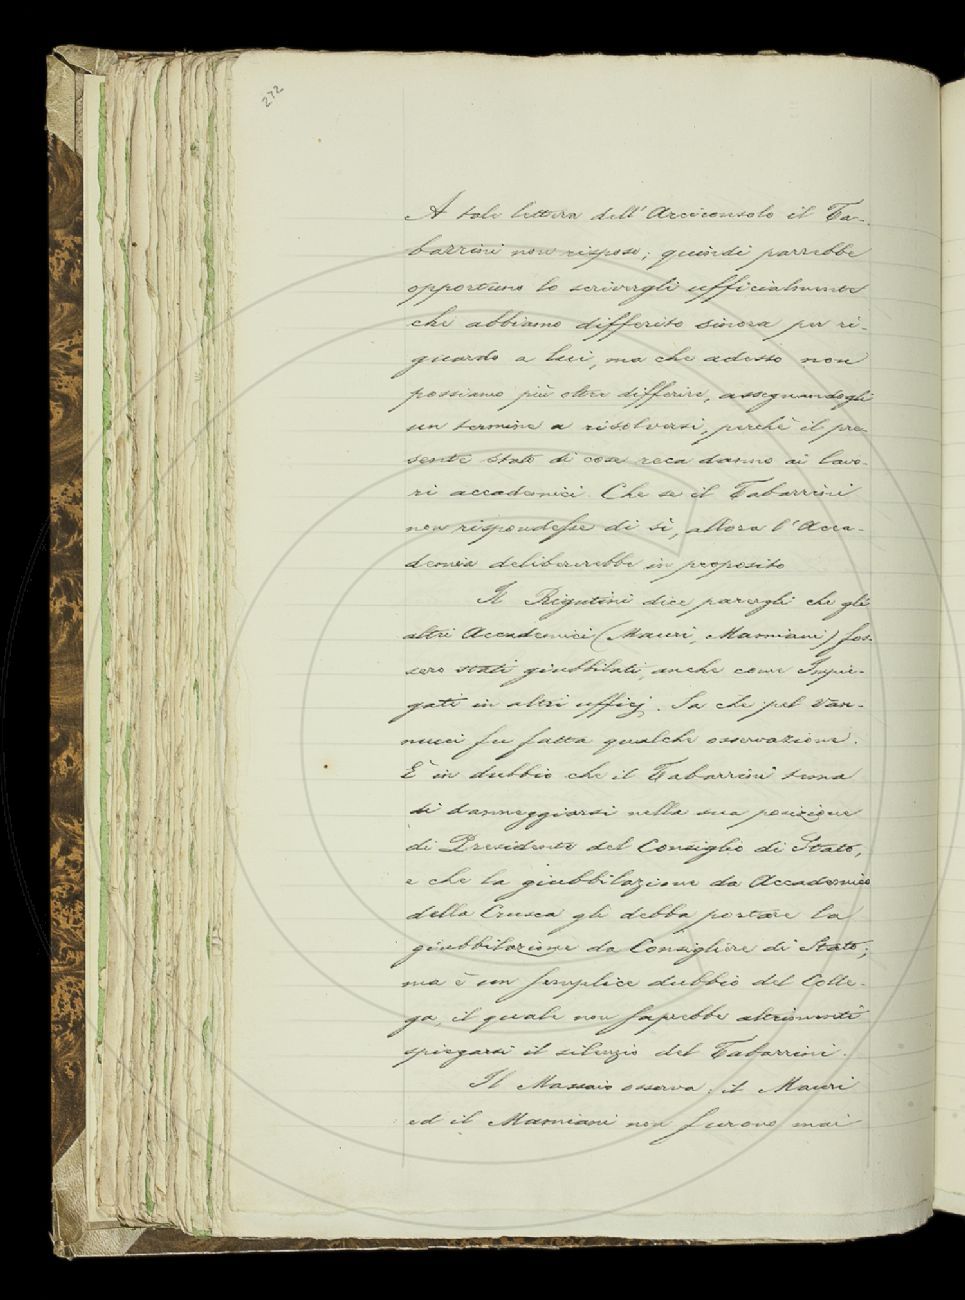 272
A tale lettera dell'Arciconsolo il Ta-
barrini non rispose; quindi parrebbe
opportuno lo scrivergli ufficialmente
che abbiamo differito sinora per ri-
guardo a lui, ma che adesso non
possiamo più oltre differire, assegnandogli
un termine a risolversi, perchè il pre-
sente stato di cose reca danno ai lavo-
ri accademici. Che se il Tabarrini
non rispondesse di sì, allora l'Acca-
demia delibererebbe in proposito
Il Rigutini dice parergli che gli
altri Accademici (Mauri, Mamiani) fos-
sero stati giubbilati, anche come Impie-
gati in altri ufficj. Sa che pel Van-
nucci fu fatta qualche osservazione.
È in dubbio che il Tabarrini tema
di danneggiarsi nella sua posizione
di Presidente del Consiglio di Stato,
e che la giubbilazione da Accademico
della Crusca gli debba portare la
giubbilazione da Consigliere di Stato;
ma è un semplice dubbio del Colle-
ga, il quale non saprebbe altrimenti
spiegarsi il silenzio del Tabarrini.
Il Massaio osserva: il Mauri
ed il Mamiani non furono mai